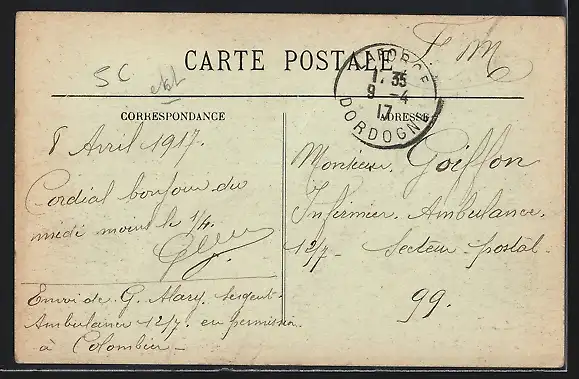 F M
CARTE POSTALE
5C
LAFORCE
17 35
9 -4
17
DORDOGNE
CORRESPONDANCE
ADRESSE
8 Avril 1917.
Cordial bonjour du
midi moins le 1/4.
Envoi de G. Mary, sergent.
Ambulance 12/7. en permission
à Colombier -
Monsieur. Goiffon
Infirmier. Ambulance.
12/7 - Secteur postal.
99.